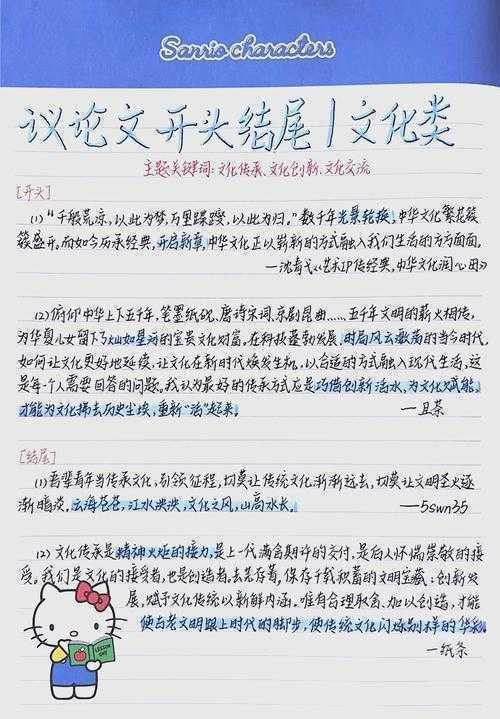 Sanrio characters
议论文开头结尾|文化类
主题关键词:文化传承、文化创新、文化交流
[开头]
(1)“千般荒凉,以此为梦,万里蹀躞,以此为归。”数千年光景轮换,中华文化繁花簇
簇盛开。而如今历承经典,开启新章,中华文化正以崭新的方式融入我们生活的方方面面。
—沈青戈《艺术IP传经典,中华文化润心田》
(2)俯仰中华上下五千年,笔墨纸砚、唐诗宋词、京剧昆曲……五千年文明的薪火相传,
为华夏儿女留下了灿如星河的宝贵文化财富。在科技蓬勃发展、时局风云激荡的当今时代,
如何让文化更好地延续,让文化在新时代焕发生机,以合适的方式融入现代生活,这
是每个人需要回答的问题。我认为最好的传承方式应是巧借创新活水,为文化赋能,
才能为文化拂去历史尘埃,重新“活”起来。 —且荼
[结尾]
(1)吾辈青年当传承文化,引领征程,切莫让传统文化渐渐远去,切莫让文明圣火逐
渐暗淡。云海苍苍,江水泱泱,文化之风,山高水长。 ——5swn35
(2)文化传承是精神火炬的接力,是上一代满含期许的交付,是后人怀揣崇敬的接
受。我们是文化的接受者,也是创造者,去芜存菁,保存千载积蓄的文明宝藏;创新发
展,赋予文化传统以新鲜内涵。唯有合理取舍、加以创造,才能
使古老文明跟上时代的脚步,使传统文化闪烁别样的华彩。
—纸条
LESSON
ONE